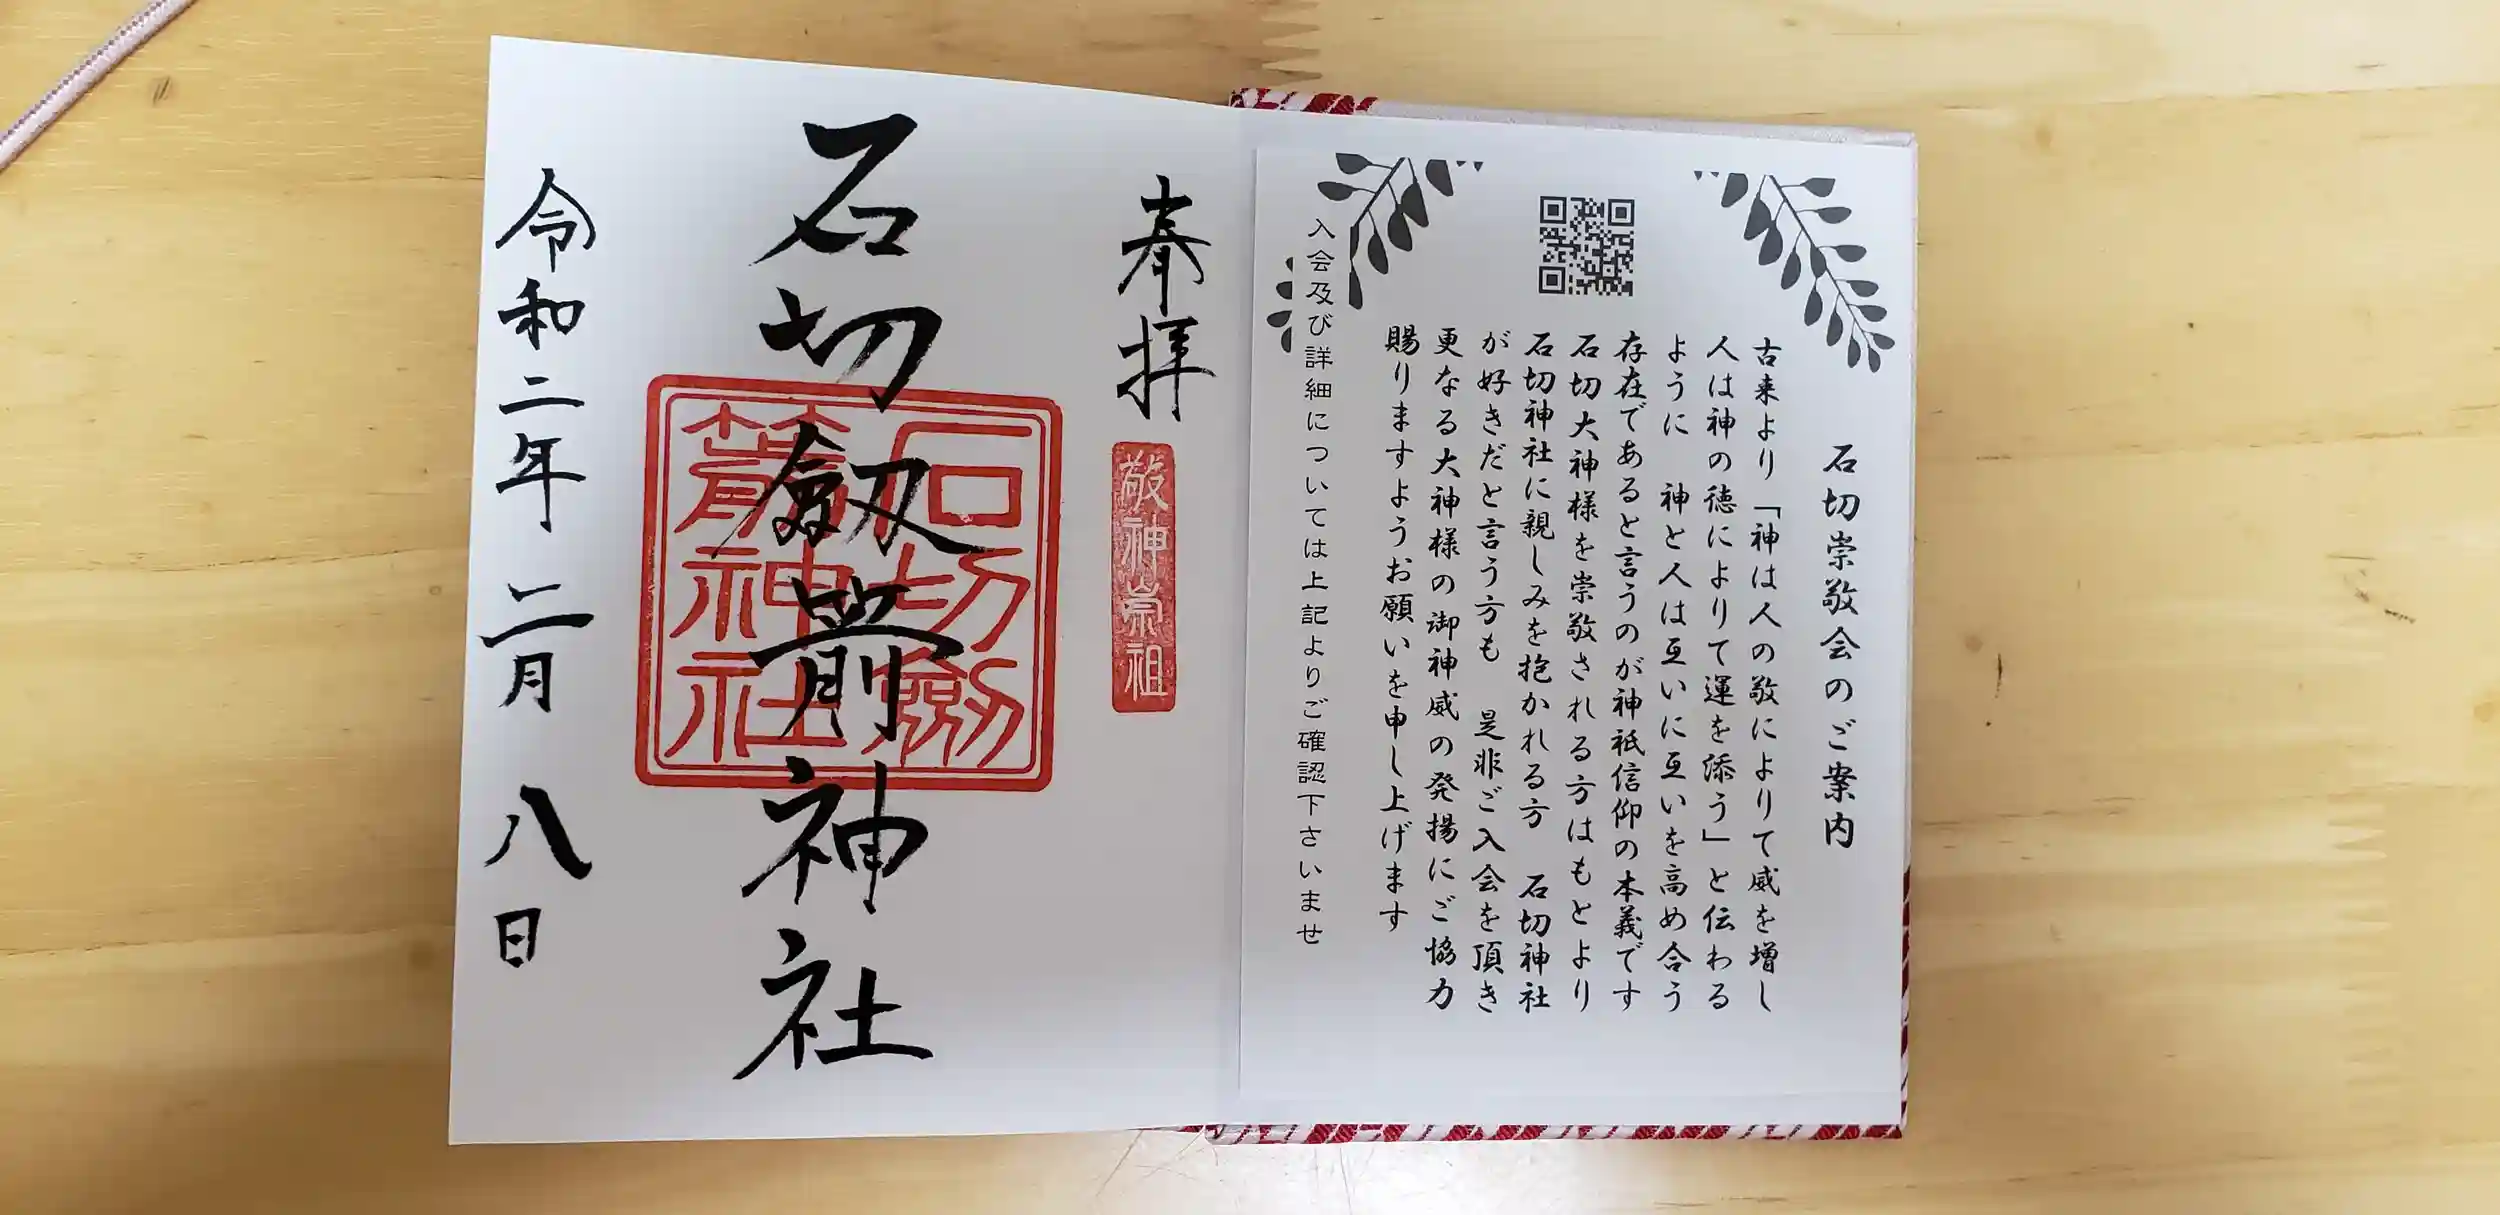 石切崇敬会のご案内
古来より「神は人の敬によりて威を増し
人は神の徳によりて運を添う」と伝わる
ように 神と人は互いに互いを高め合う
存在であると言うのが神祇信仰の本義です
石切大神様を崇敬される方はもとより
石切神社に親しみを抱かれる方 石切神社
が好きだと言う方も 是非ご入会を頂き
更なる大神様の御神威の発揚にご協力
賜りますようお願いを申し上げます
入会及び詳細については上記よりご確認下さいませ
奉拝
敬神崇祖
石切劔箭神社
石切劔
箭神社
令和二年 二月 八日